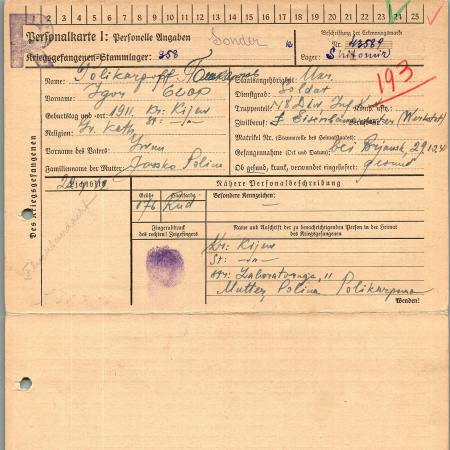 1 2 3 4 5 6 7 8 9 10 11 12 13 14 15 16 17 18 19 20 21 22 23 24 25
Personalkarte I: Personelle Angaben
Sonder
Beschriftung der Erkennungsmarke
Nr. 43589
Kriegsgefangenen-Stammlager: 358
Lager: Shitomir
193
Des Kriegsgefangenen
Name: Polikarpoff
Vorname: Igor
Geburtstag und -ort: 1911. Kr: Kijew
St: -„-
Religion: Gr. Kath.
Vorname des Vaters: Iwan
Familienname der Mutter: Polina
Staatsangehörigkeit: Ukr.
Dienstgrad: Soldat
Truppenteil: Komp. usw.:
Zivilberuf:
Matrikel Nr. (Stammrolle des Heimatstaates):
Gefangennahme (Ort und Datum): bei
Ob gesund, krank, verwundet eingeliefert: gesund
Lichtbild
Nähere Personalbeschreibung
Größe
Haarfarbe
Besondere Kennzeichen:
176
Fingerabdruck
des rechten! Zeigefingers
Name und Anschrift der zu benachrichtigenden Person in der Heimat
des Kriegsgefangenen
Kr: Kijew
St: -„-
Str: 11
Mutter Polina Polikarpowa
Wenden!